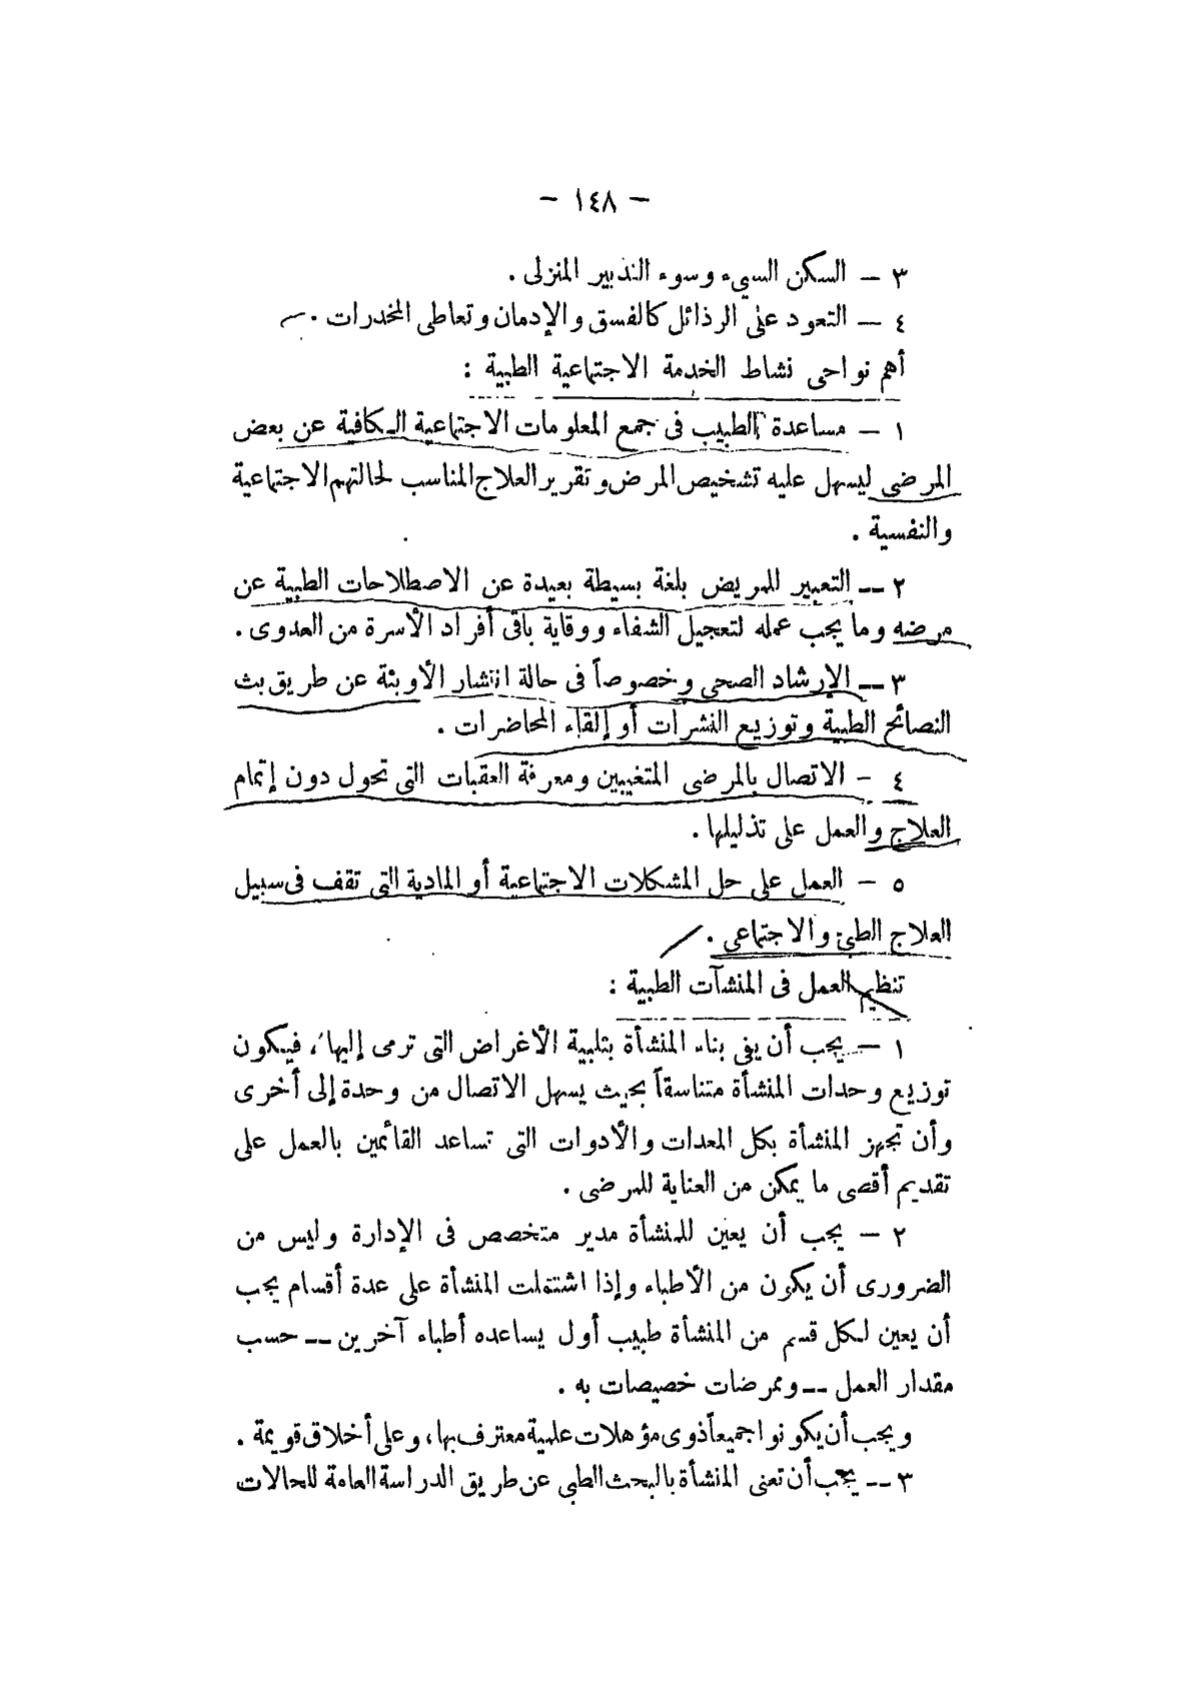 - ١٤٨ -
٣ - السكن السيء وسوء التدبير المنزلى .
٤ - التعود على الرذائل كالفسق والإدمان وتعاطى المخدرات .
أهم نواحى نشاط الخدمة الاجتماعية الطبية :
١ - مساعدة الطبيب فى جمع المعلومات الاجتماعية الكافية عن بعض
المرضى ليسهل عليه تشخيص المرض وتقرير العلاج المناسب لحالتهم الاجتماعية
والنفسية .
٢ - التعبير للمريض بلغة بسيطة بعيدة عن الاصطلاحات الطبية عن
مرضه وما يجب عمله لتعجيل الشفاء ووقاية باقى أفراد الأسرة من العدوى .
٣ - الإرشاد الصحى وخصوصاً فى حالة انتشار الأوبئة عن طريق بث
النصائح الطبية وتوزيع النشرات أو إلقاء المحاضرات .
٤ - الاتصال بالمرضى المتغيبين ومعرفة العقبات التى تحول دون إتمام
العلاج والعمل على تذليلها .
٥ - العمل على حل المشكلات الاجتماعية أو المادية التى تقف فى سبيل
العلاج الطبى والاجتماعى .
تنظيم العمل فى المنشآت الطبية :
١ - يجب أن يفى بناء المنشأة بتلبية الأغراض التى ترمى إليها ، فيكون
توزيع وحدات المنشأة متناسقاً بحيث يسهل الاتصال من وحدة إلى أخرى
وأن تجهز المنشأة بكل المعدات والأدوات التى تساعد القائمين بالعمل على
تقديم أقصى ما يمكن من العناية للمرضى .
٢ - يجب أن يعين للمنشأة مدير متخصص فى الإدارة وليس من
الضرورى أن يكون من الأطباء وإذا اشتملت المنشأة على عدة أقسام يجب
أن يعين لكل قسم من المنشأة طبيب أول يساعده أطباء آخرين - حسب
مقدار العمل - وممرضات خصيصات به .
ويجب أن يكونوا جميعاً ذوى مؤهلات علمية معترف بها، وعلى أخلاق قويمة .
٣ - يجب أن تعنى المنشأة بالبحث الطبى عن طريق الدراسة العامة للحالات